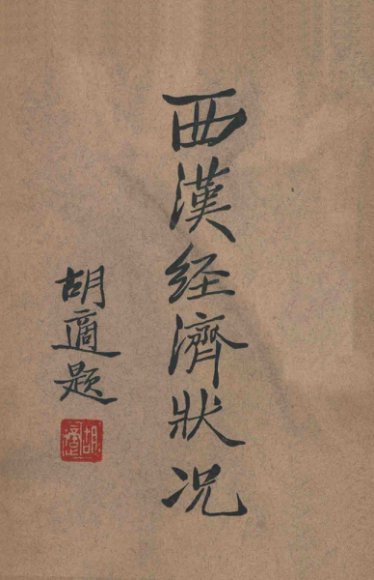 西漢经濟狀况
胡適題
胡適